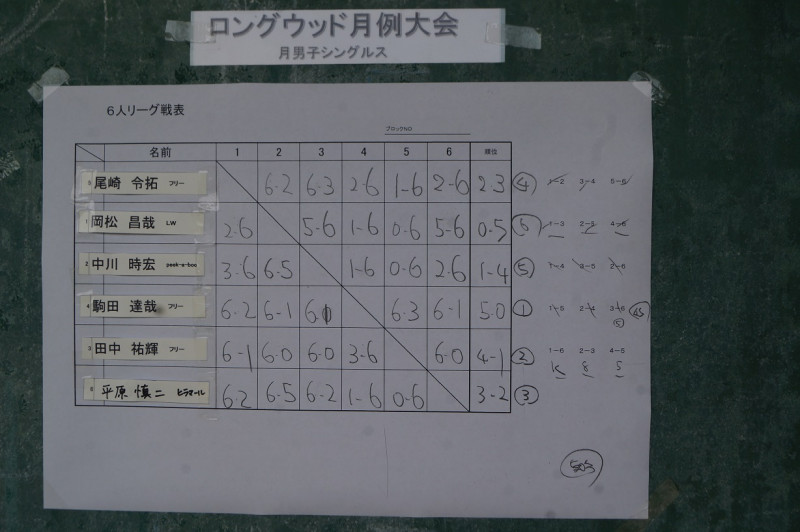 ロングウッド月例大会
月男子シングルス
6人リーグ戦表
ブロックNO
名前 1 2 3 4 5 6 順位
尾崎 令拓 フリー 6-2 6-3 2-6 1-6 2-6 2-3 ④
岡松 昌哉 LW 2-6 5-6 1-6 0-6 5-6 0-5 ⑥
中川 時宏 peek-a-boo 3-6 6-5 1-6 0-6 2-6 1-4 ⑤
駒田 達哉 フリー 6-2 6-1 6-1 6-3 6-1 5-0 ①
田中 祐輝 フリー 6-1 6-0 6-0 3-6 6-0 4-1 ②
平原 慎二 ヒラマール 6-2 6-5 6-2 1-6 0-6 3-2 ③
1-2 3-4 5-6
1-3 2-5 4-6
1-4 3-5 2-6
1-5 2-4 3-6
1-6 2-3 4-5